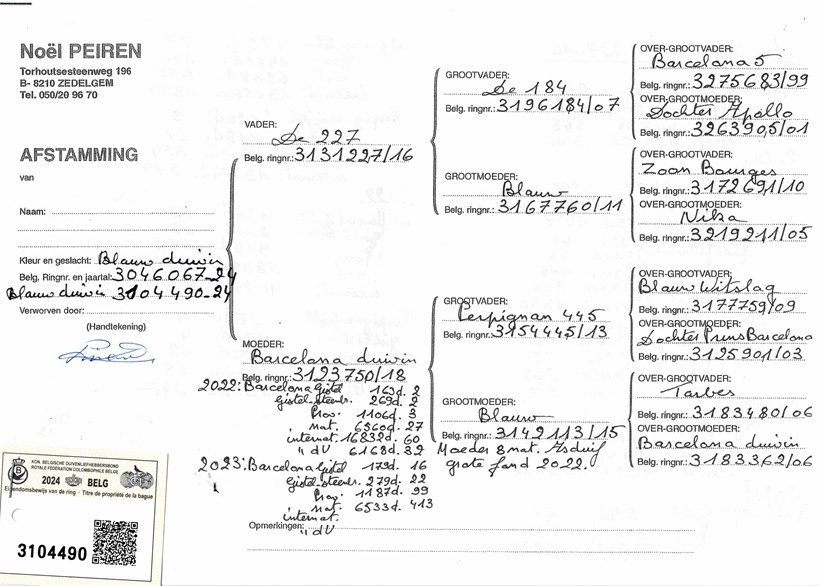 Noël PEIREN
Torhoutsesteenweg 196
B- 8210 ZEDELGEM
Tel. 050/20 96 70
AFSTAMMING
van
Naam:
Kleur en geslacht: Blauw duivin
Belg. Ringnr. en jaartal: 3046067-24
Blauw duivin 3104490-24
Verworven door:
(Handtekening)
VADER:
De 227
Belg. ringnr.: 3131227/16
MOEDER:
Barcelona duivin
Belg. ringnr.: 3123750/18
2022: Barcelona Gistel 163d. 2
Gistel-steenbr. 269d. 2
Prov. 1106d. 3
nat. 6560d. 27
internat. 16832d. 60
" dV 6168d. 32
2023: Barcelona Gistel 179d. 16
Gistel-steenbr. 279d. 22
Prov. 1187d. 99
nat. 6533d. 413
internat.
" dV
Opmerkingen:
GROOTVADER:
De 184
Belg. ringnr.: 3196184/07
GROOTMOEDER:
Blauw
Belg. ringnr.: 3167760/11
GROOTVADER:
Perpignan 445
Belg. ringnr.: 3154445/13
GROOTMOEDER:
Blauw
Belg. ringnr.: 3142113/15
Moeder 8 nat. Asduif
grote fond 2022.
OVER-GROOTVADER:
Barcelona 5
Belg. ringnr.: 3275683/99
OVER-GROOTMOEDER:
Dochter Apollo
Belg. ringnr.: 3263905/01
OVER-GROOTVADER:
Zoon Bourges
Belg. ringnr.: 3172691/10
OVER-GROOTMOEDER:
Nika
Belg. ringnr.: 3219211/05
OVER-GROOTVADER:
Blauw Witslag
Belg. ringnr.: 3177759/09
OVER-GROOTMOEDER:
Dochter Prins Barcelona
Belg. ringnr.: 3125901/03
OVER-GROOTVADER:
Tarbes
Belg. ringnr.: 3183480/06
OVER-GROOTMOEDER:
Barcelona duivin
Belg. ringnr.: 3183362/06
KON. BELGISCHE DUIVENLIEFHEBBERSBOND
ROYALE FÉDÉRATION COLOMBOPHILE BELGE
2024 BELG
Eigendomsbewijs van de ring - Titre de propriété de la bague
3104490